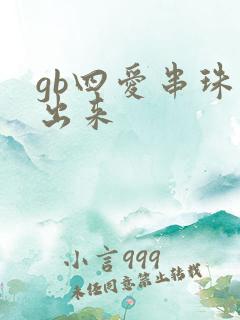 gb四愛串珠
出来
小言999
未经同意禁止转载